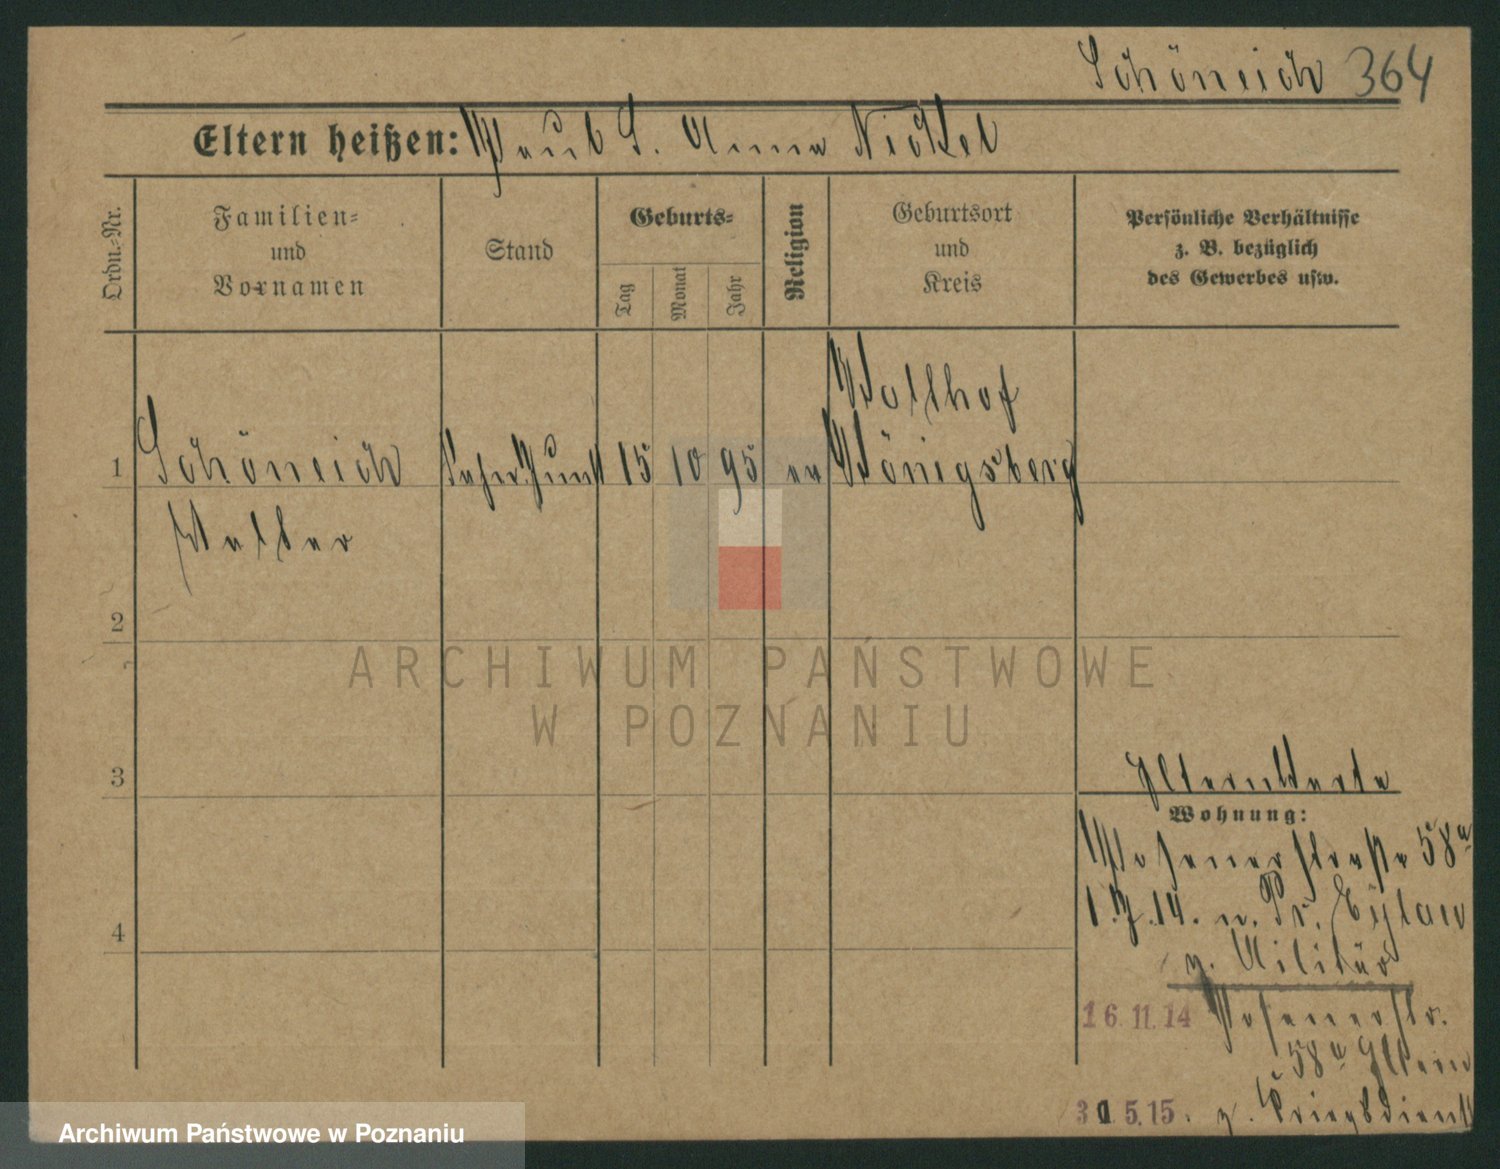 Schöneich 364
Eltern heißen: Paul S. Anna Nickel
Ordn.-Nr.
Familien-
und
Vornamen
Stand
Geburts-
Tag
Monat
Jahr
Religion
Geburtsort
und
Kreis
Persönliche Verhältnisse
z. B. bezüglich
des Gewerbes usw.
Wollhof
1 Schöneich 15 10 95 ev Königsberg
Walter
2
3
ARCHIWUM PAŃSTWOWE
W POZNANIU
Elternkarte
Wohnung:
Posenerstraße 58a
4
1.7.14. n. Pr. Eylau
z. Militär
16.11.14 Posenerstr.
58a Eltern
31.5.15. z. Kriegsdienst
Archiwum Państwowe w Poznaniu